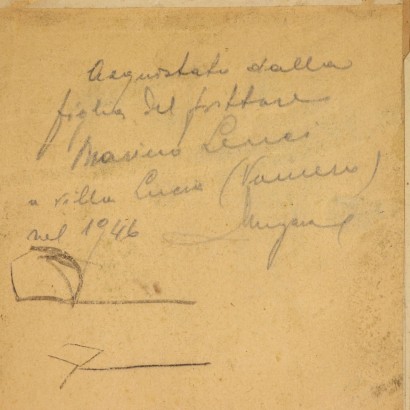 Acquistato dalla
figlia del pittore
Marino Lenci
a villa Lucia (Vomero)
nel 1946
7